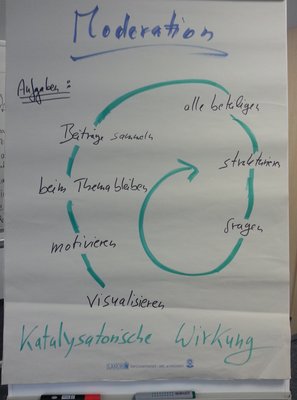 Moderation
Aufgaben:
alle beteiligen
Beiträge sammeln
strukturieren
beim Thema bleiben
fragen
motivieren
visualisieren
Katalysatorische Wirkung